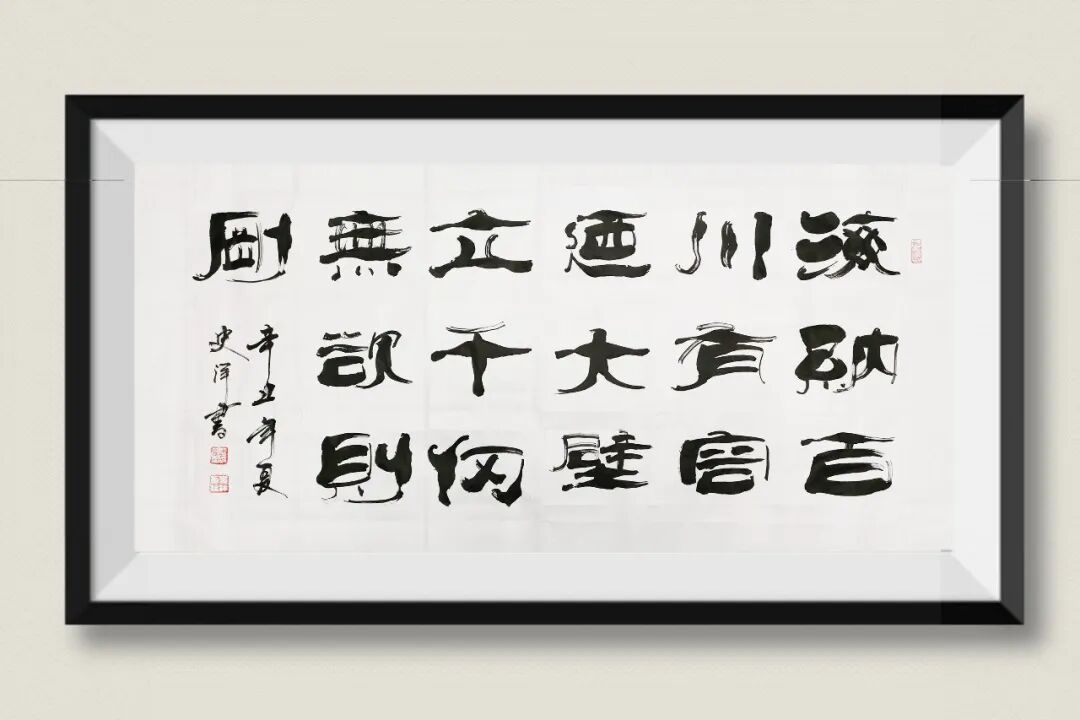 海納百
川有容
迺大壁
立千仞
無欲則
剛
辛丑年夏
史洋書